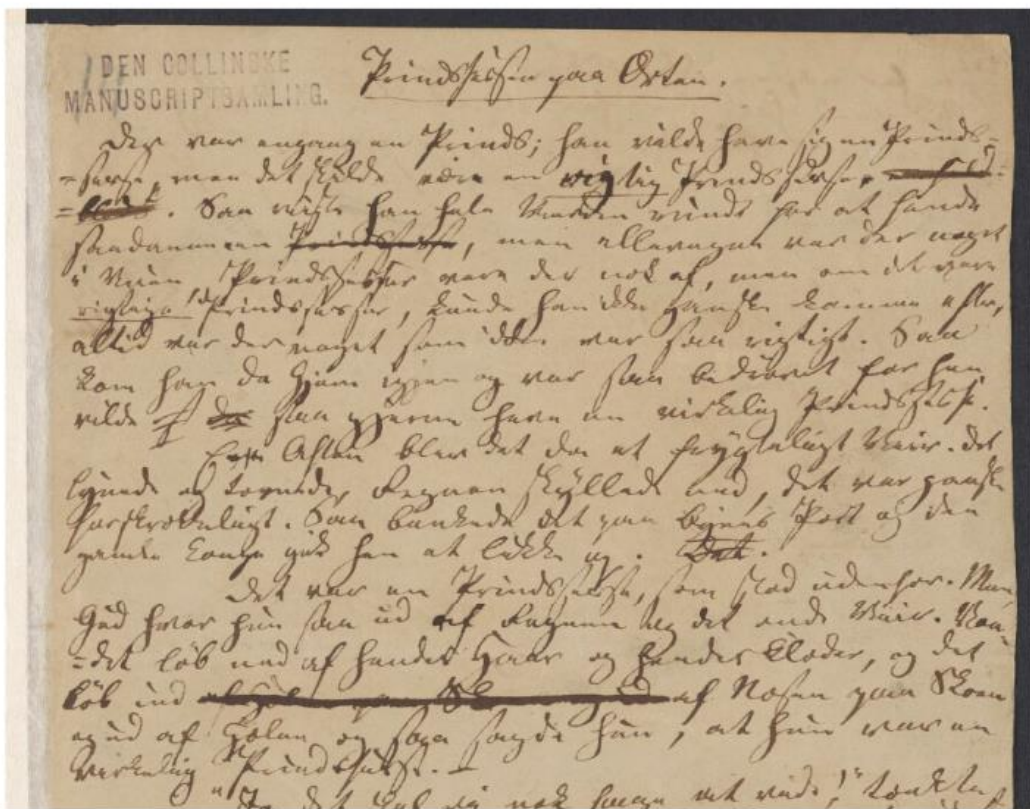 DEN COLLINSKE
MANUSCRIPTSAMLING.
Prindsessen paa Ærten.
Der var engang en Prinds; han vilde have sig en Prind-
=sesse, men det skulde være en rigtig Prindsesse,
Saa reiste han hele Verden rundt for at finde
saadan en Prindsesse, men allevegne var der noget
i Veien, Prindsesser vare der nok af, men om det vare
rigtige Prindsesser, kunde han ikke ganske komme efter,
altid var der noget som ikke var saa rigtigt. Saa
kom han da hjem igjen og var saa bedrøvet for han
vilde saa gjerne have en virkelig Prindsesse.
Aften blev det da et frygteligt Veir. det
lynede og tornede, Regnen skyllede ned, det var ganske
forskrækkeligt. Saa bankede det paa Byens Port og den
gamle Konge gik hen at lukke op. Det.
Det var en Prindsesse, som stod udenfor. Men
Gud hvor hun saa ud af Regnen og det onde Veir. Van-
=det løb ned af hendes Haar og hendes Klæder, og det
løb ind af Næsen paa Skoen
og ud af Hælen og saa sagde hun, at hun var en
virkelig Prindsesse.
"Ja det skal vi nok faae at vide!" tænkte